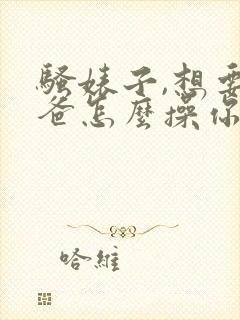 騷婊子,想要
爸怎麼操你
哈維